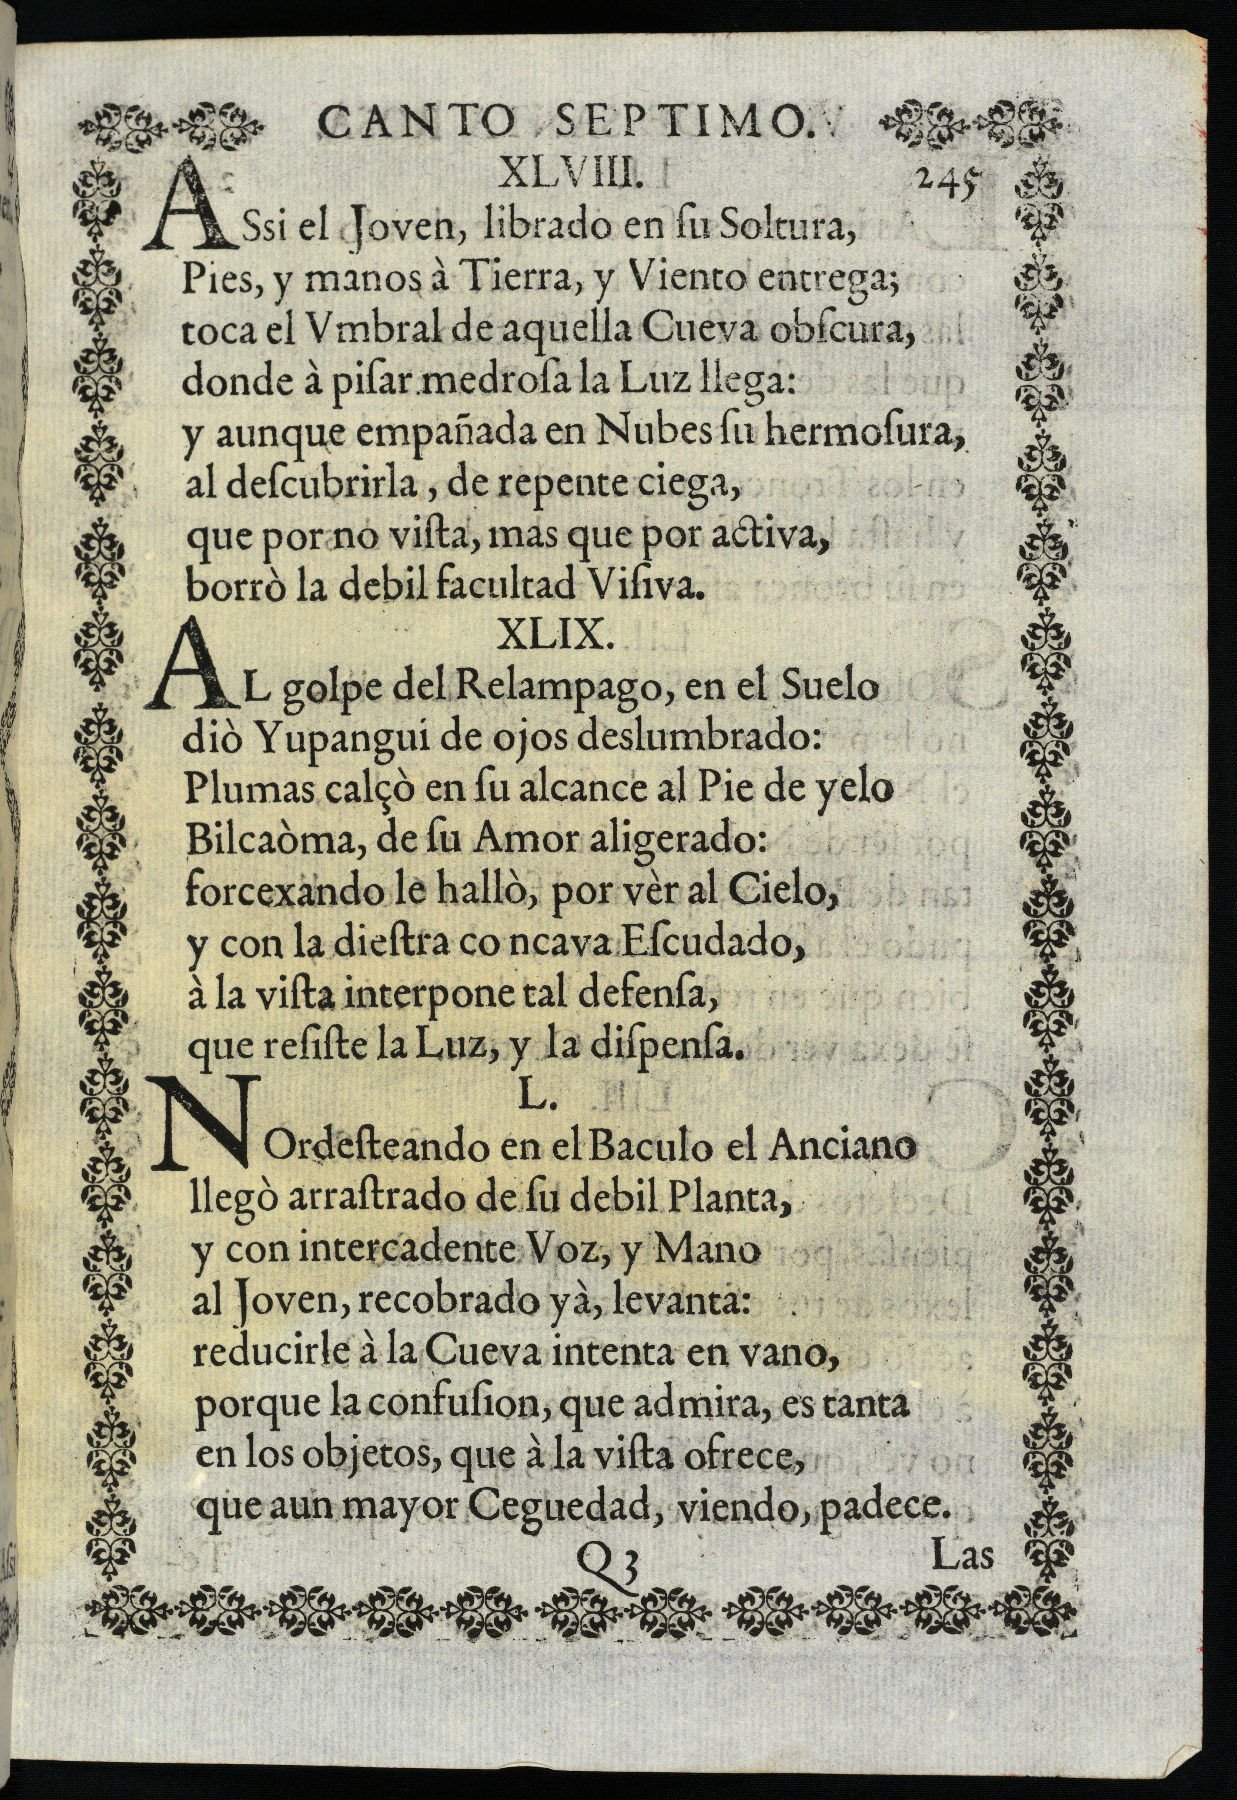 CANTO SEPTIMO.
XLVIII. 245
ASsi el Joven, librado en ſu Soltura,
Pies, y manos à Tierra, y Viento entrega;
toca el Vmbral de aquella Cueva obſcura,
donde à piſar medroſa la Luz llega:
y aunque empañada en Nubes ſu hermoſura,
al deſcubrirla, de repente ciega,
que por no viſta, mas que por activa,
borrò la debil facultad Viſiva.
XLIX.
AL golpe del Relampago, en el Suelo
diò Yupangui de ojos deslumbrado:
Plumas calçò en ſu alcance al Pie de yelo
Bilcaòma, de ſu Amor aligerado:
forcexando le hallò, por vèr al Cielo,
y con la dieſtra co ncava Eſcudado,
à la viſta interpone tal defenſa,
que reſiſte la Luz, y la diſpenſa.
L.
NOrdeſteando en el Baculo el Anciano
llegò arraſtrado de ſu debil Planta,
y con intercadente Voz, y Mano
al Joven, recobrado yà, levanta:
reducirle à la Cueva intenta en vano,
porque la confuſion, que admira, es tanta
en los objetos, que à la viſta ofrece,
que aun mayor Ceguedad, viendo, padece.
Q3 Las